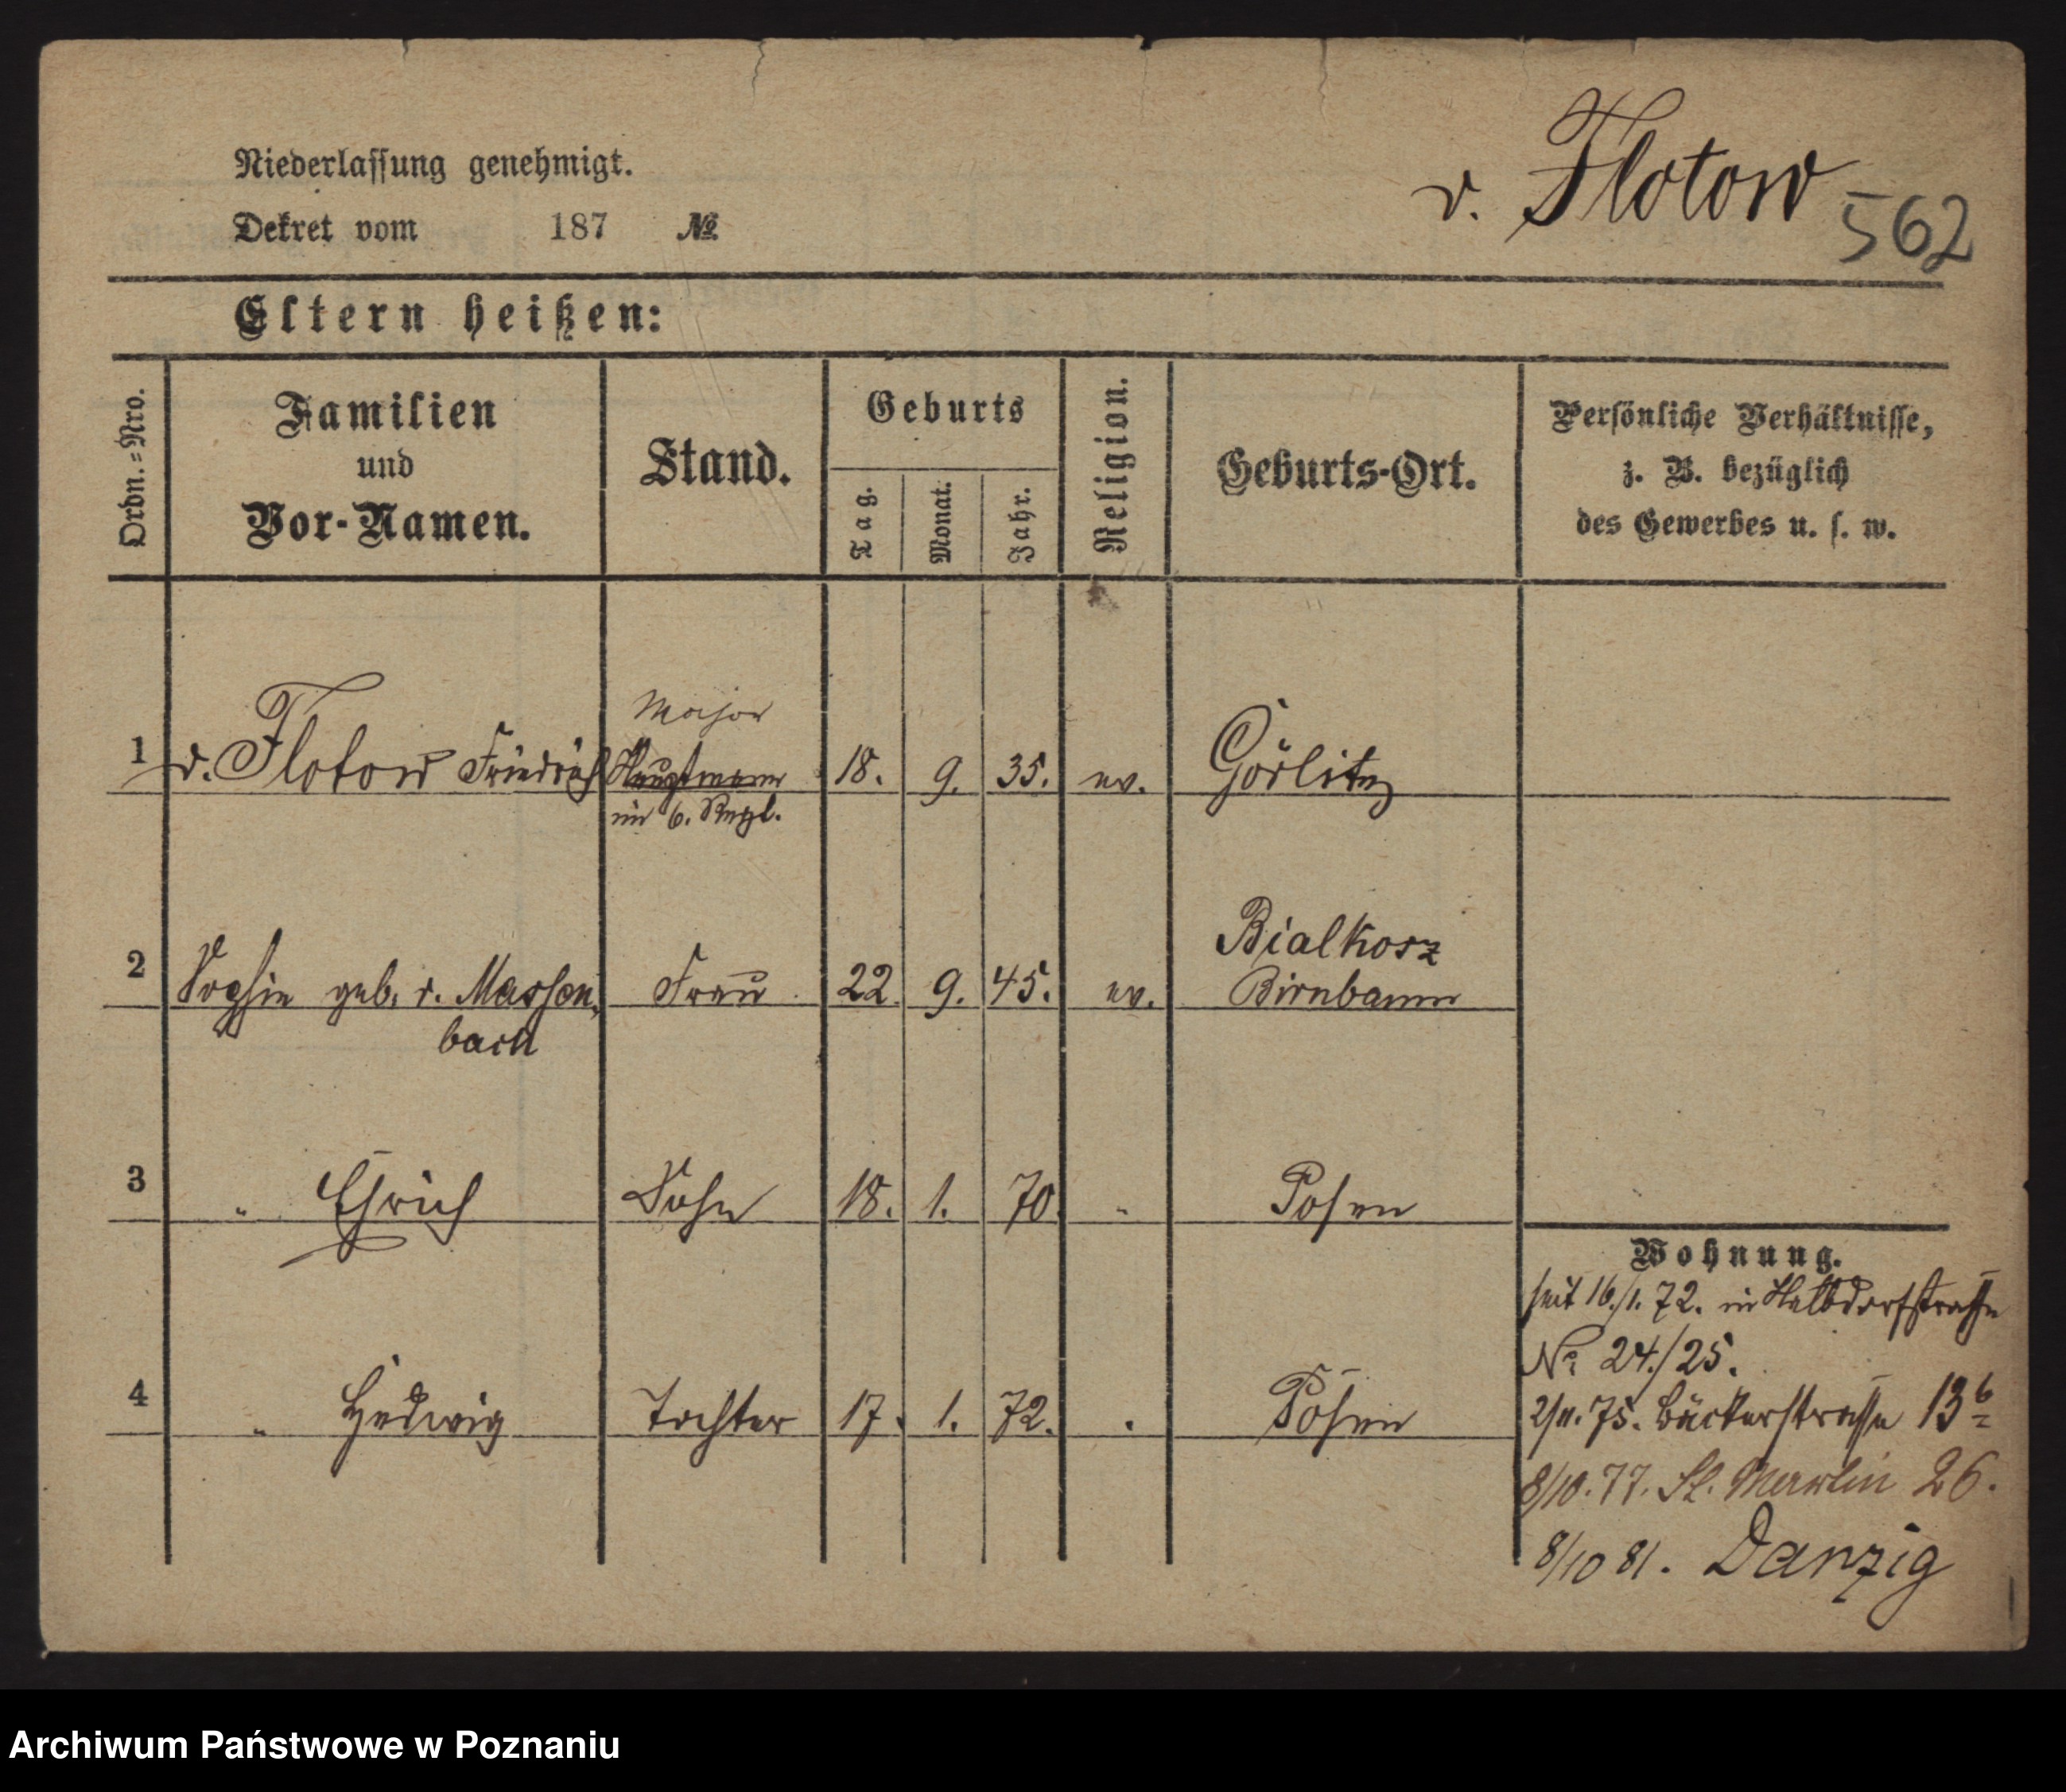 Niederlassung genehmigt.
v. Flotow 562
Dekret vom 187 №
Eltern heißen:
Ordn.-Nro.
Familien
und
Vor-Namen.
Stand.
Geburts
Tag.
Monat.
Jahr.
Religion.
Geburts-Ort.
Persönliche Verhältnisse,
z. B. bezüglich
des Gewerbes u. s. w.
Major
1 v. Flotow Friedrich Hauptmann 18. 9. 35. ev. Görlitz
im 6. Regt.
Bialkosz
2 Sophie geb. v. Massen- Frau 22. 9. 45. ev. Birnbaum
bach
3 " Ehrich Sohn 18. 1. 70. " Posen
4 " Hedwig Tochter 17. 1. 72. " Posen
Wohnung.
seit 16./1. 72. in Halbdorfstrasse
No 24./25.
2/11. 75. Bäckerstrasse 13b
8/10. 77. St. Martin 26.
8/10 81. Danzig
Archiwum Państwowe w Poznaniu